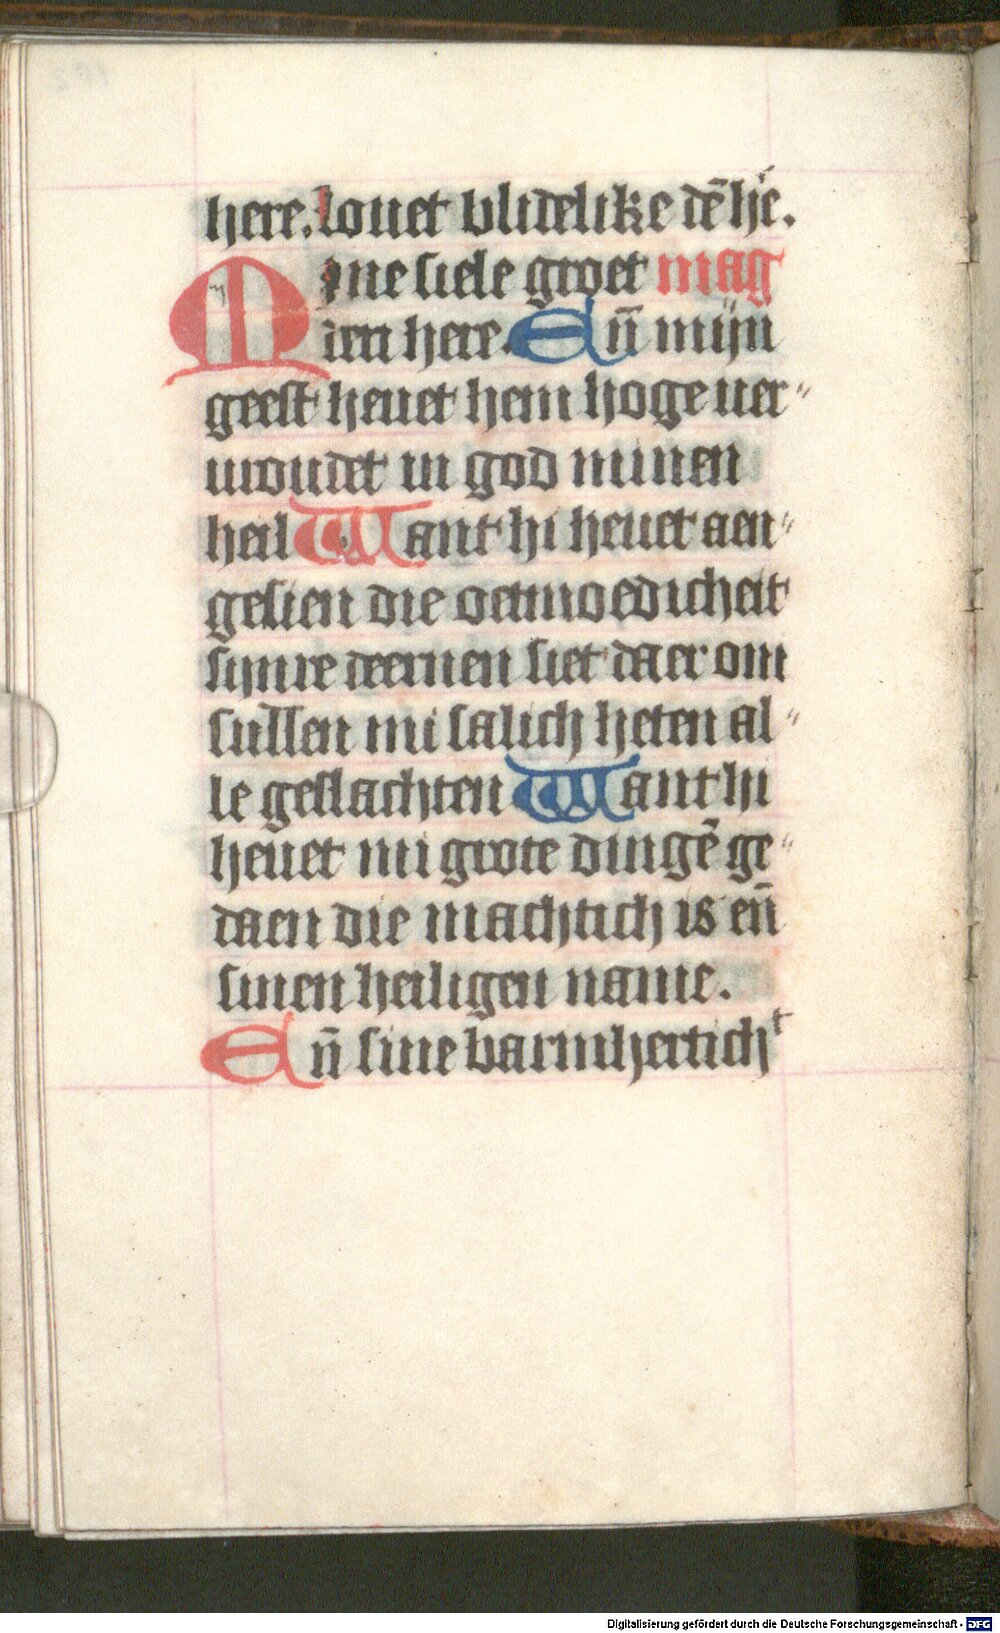 here. louet blidelike dē hē.
Mine siele groet mag
den here. Eñ mijn
geest heuet hem hoge uer〃
woudet in god minen
heil Want hi heuet aen〃
gesien die oetmoedicheit
sijnre deernen siet daer om
sullen mi salich heten al〃
le geslachten Want hi
heuet mi grote dingē ge〃
daen die machtich is eñ
sinen heiligen name.
Eñ sine barmhertichᵗ
Digitalisierung gefördert durch die Deutsche Forschungsgemeinschaft - DFG